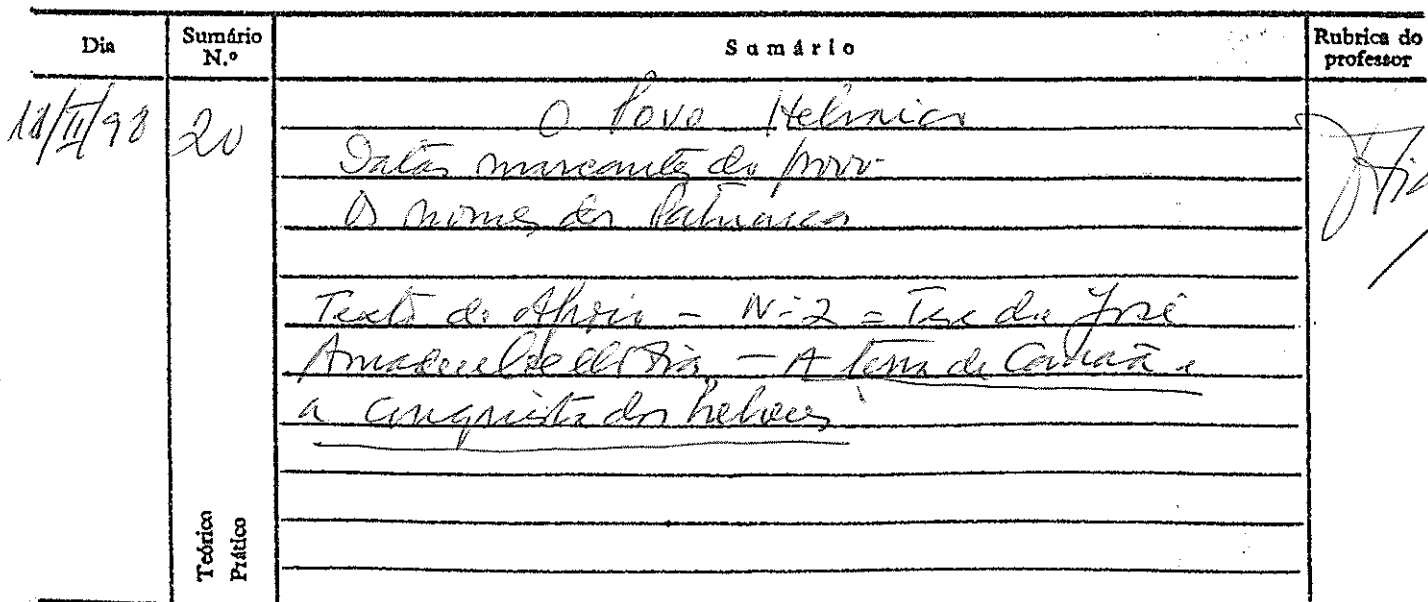 Dia Sumário N.º Sumário Rubrica do professor
11/II/98 20 O Povo Hebraico
Datas marcantes do povo
Os nomes dos Patriarcas
Texto de Apoio - Nº 2 = Tese de José
Amadeu - A terra de Canaã e
a conquista dos hebreus
Teórico
Prático